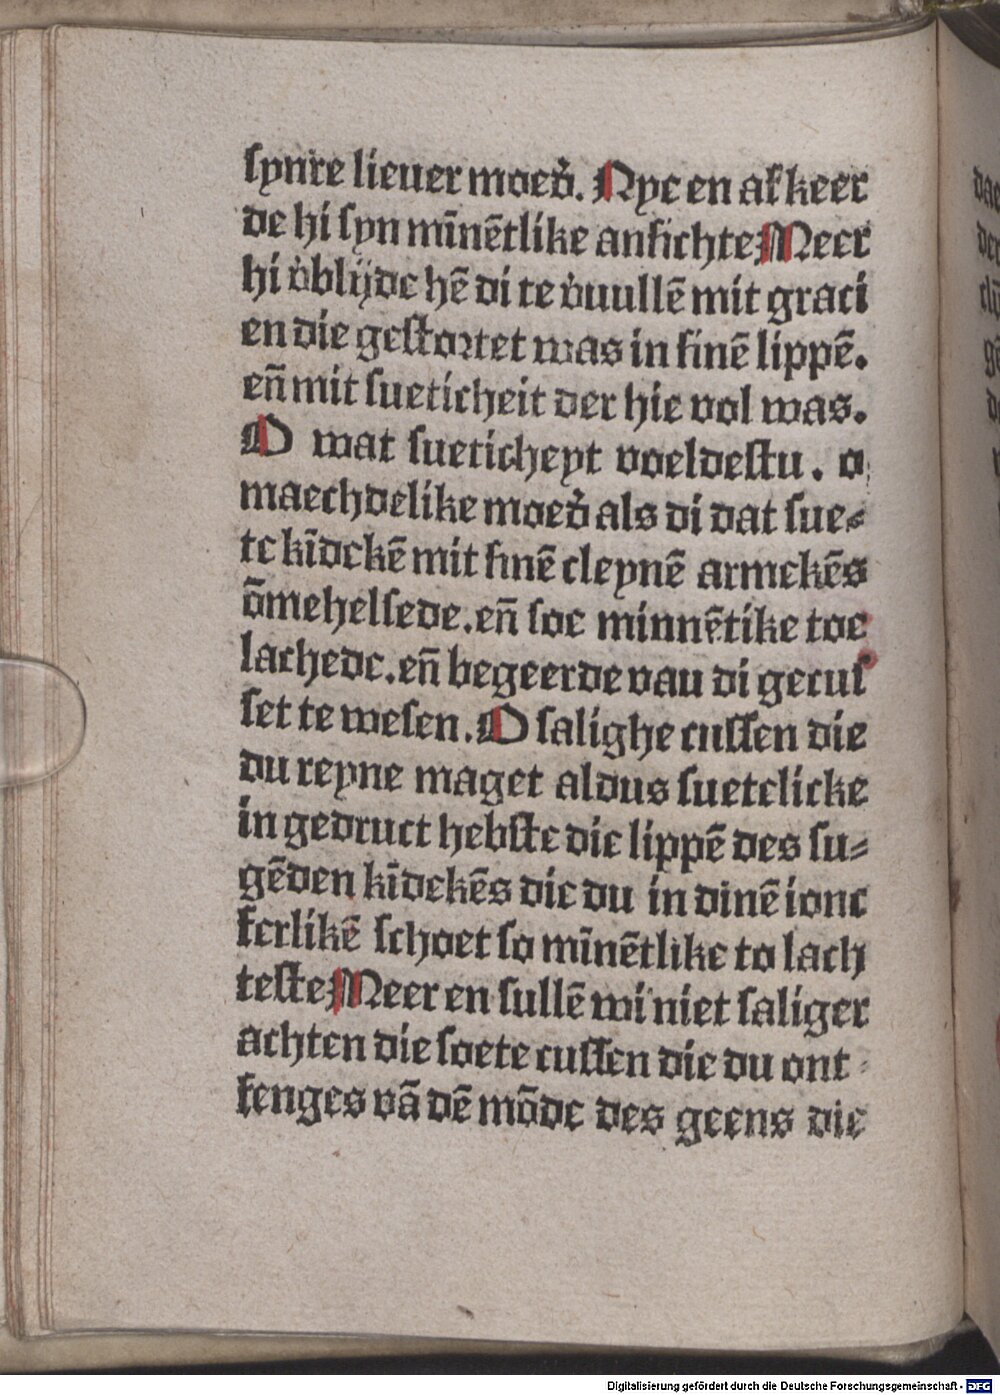 synre lieuer moed̉. Nyc en af keer
de hi syn mīnētlike ansichte Meer
hi v̉blijde hē di te v̉uullē mit graci
en die gestortet was in sinē lippē.
en̄ mit sueticheit der hie vol was.
O wat sueticheyt voeldestu. o
maechdelike moed̉ als di dat sue⸗
te kīdekē mit sinē cleynē armekēs
ōmehelsede. en̄ soe minnētike toe
lachede. en̄ begeerde vau di gecus
set te wesen. O salighe cussen die
du reyne maget aldus suetelicke
in gedruct hebste die lippē des su⸗
gēden kīdekēs die du in dinē ionc
ferlikē schoet so mīnētlike to lach
teste Meer en sullē wi niet saliger
achten die soete cussen die du ont
fenges vā dē mōde des geens die
Digitalisierung gefördert durch die Deutsche Forschungsgemeinschaft - DFG